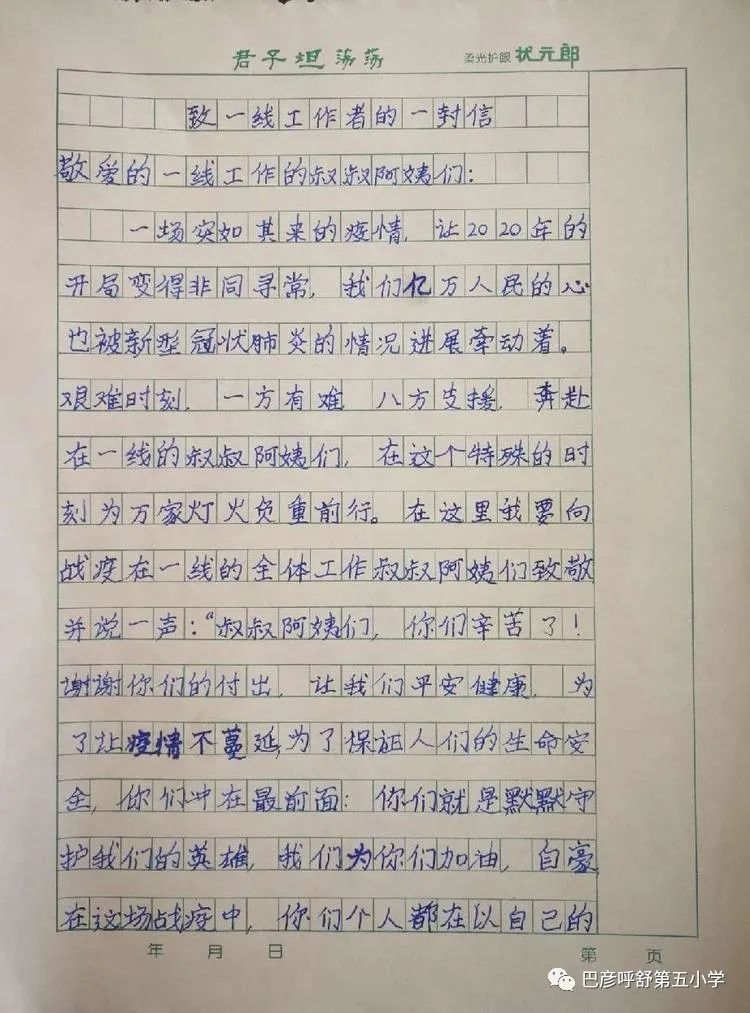 君子坦荡荡 柔光护眼 状元郎
致一线工作者的一封信
敬爱的一线工作的叔叔阿姨们：
一场突如其来的疫情，让2020年的
开局变得非同寻常，我们亿万人民的心
也被新型冠状肺炎的情况进展牵动着。
艰难时刻，一方有难，八方支援，奔赴
在一线的叔叔阿姨们，在这个特殊的时
刻为万家灯火负重前行。在这里我要向
战疫在一线的全体工作叔叔阿姨们致敬
并说一声：“叔叔阿姨们，你们辛苦了！
谢谢你们的付出，让我们平安健康，为
了让疫情不蔓延，为了保证人们的生命安
全，你们冲在最前面：你们就是默默守
护我们的英雄，我们为你们加油，自豪，
在这场战疫中，你们个人都在以自己的
年 月 日 第 页
巴彦呼舒第五小学